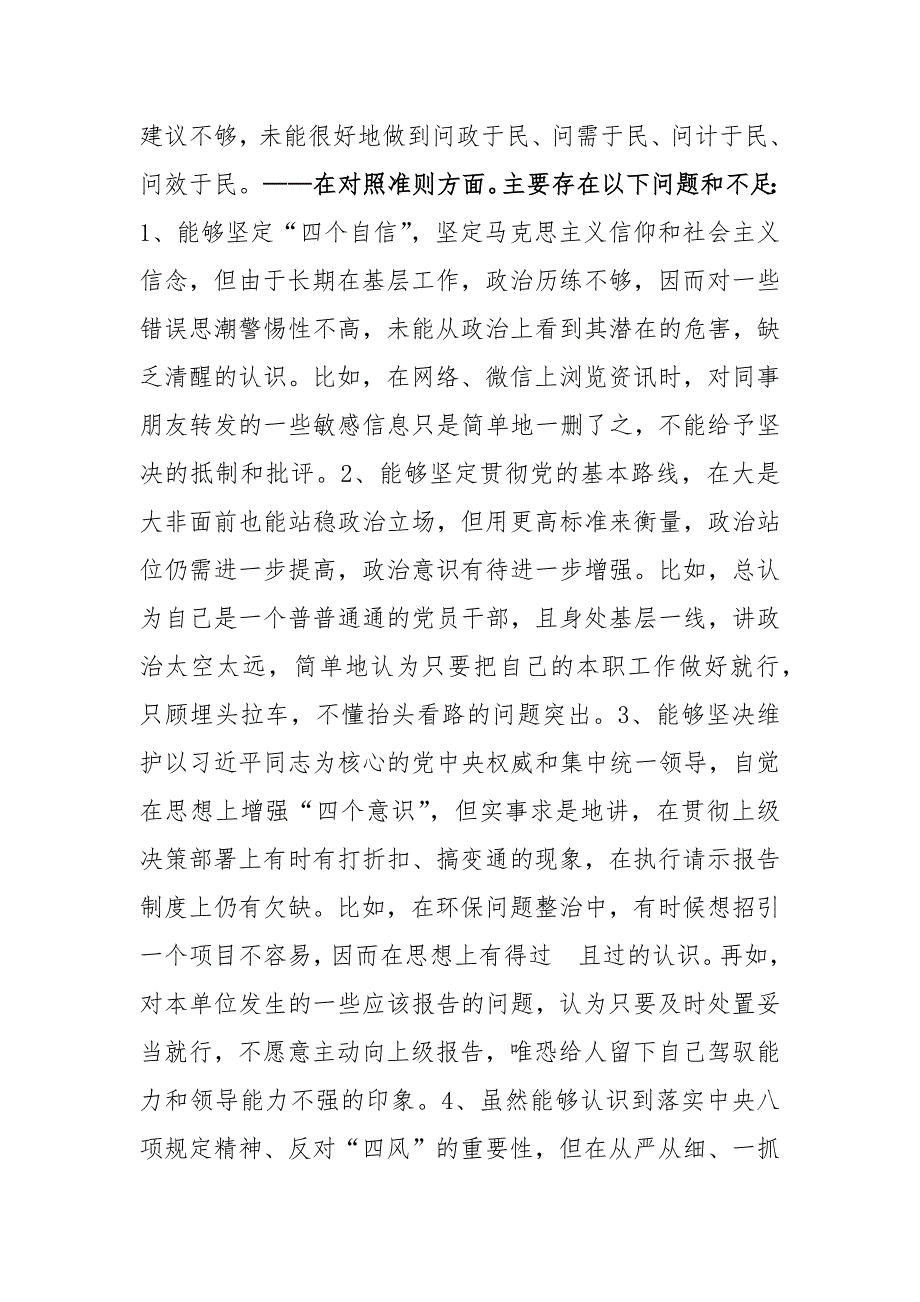 建议不够，未能很好地做到问政于民、问需于民、问计于民、
问效于民。——在对照准则方面。主要存在以下问题和不足：
1、能够坚定“四个自信”，坚定马克思主义信仰和社会主义
信念，但由于长期在基层工作，政治历练不够，因而对一些
错误思潮警惕性不高，未能从政治上看到其潜在的危害，缺
乏清醒的认识。比如，在网络、微信上浏览资讯时，对同事
朋友转发的一些敏感信息只是简单地一删了之，不能给予坚
决的抵制和批评。2、能够坚定贯彻党的基本路线，在大是
大非面前也能站稳政治立场，但用更高标准来衡量，政治站
位仍需进一步提高，政治意识有待进一步增强。比如，总认
为自己是一个普普通通的党员干部，且身处基层一线，讲政
治太空太远，简单地认为只要把自己的本职工作做好就行，
只顾埋头拉车，不懂抬头看路的问题突出。3、能够坚决维
护以习近平同志为核心的党中央权威和集中统一领导，自觉
在思想上增强“四个意识”，但实事求是地讲，在贯彻上级
决策部署上有时有打折扣、搞变通的现象，在执行请示报告
制度上仍有欠缺。比如，在环保问题整治中，有时候想招引
一个项目不容易，因而在思想上有得过　且过的认识。再如，
对本单位发生的一些应该报告的问题，认为只要及时处置妥
当就行，不愿意主动向上级报告，唯恐给人留下自己驾驭能
力和领导能力不强的印象。4、虽然能够认识到落实中央八
项规定精神、反对“四风”的重要性，但在从严从细、一抓